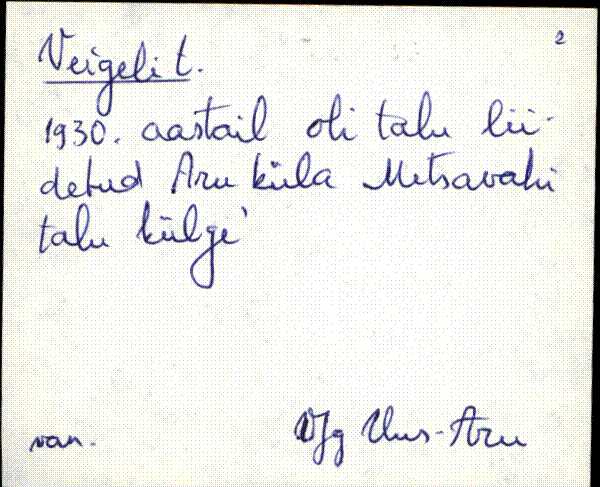 2
Veigeli t.
1930. aastail oli talu lii-
detud Aru küla Metsavahi
talu külge'
van. VJg Uus-Aru